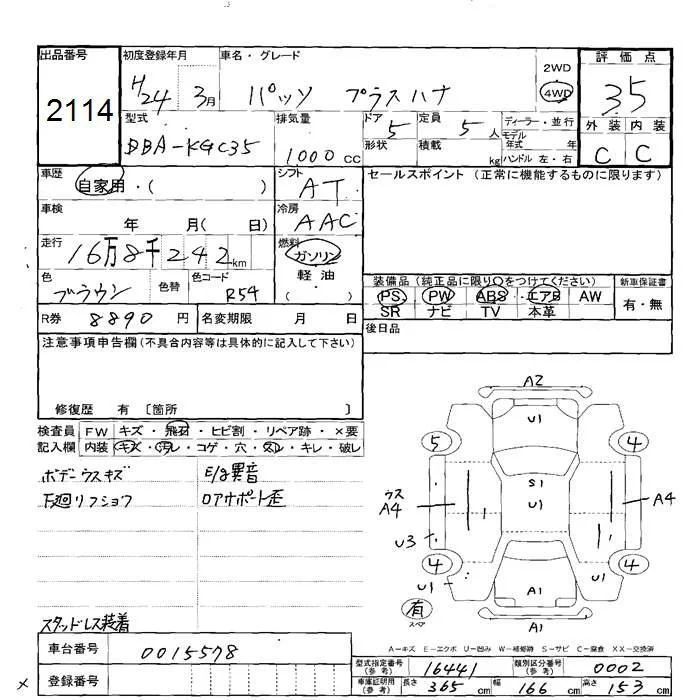 出品番号
2114
初度登録年月
H24年 3月
車名・グレード
パッソ プラスハナ
2WD
4WD
評価点
35
外装 内装
C C
型式
DBA-KGC35
排気量
1000 CC
ドア 5
形状
定員 5 人
積載 kg
ディーラー・並行
モデル年式 年
ハンドル 左・右
車歴
自家用・( )
シフト
AT
セールスポイント (正常に機能するものに限ります)
車検
年 月( 日)
冷房
AAC
走行
16万8千242km
燃料
ガソリン
軽油
( )
色
ブラウン
色替
色コード
R54
装備品(純正品に限り○をつけてください)
PS PW ABS エアB AW
SR ナビ TV 本革
新車保証書
有・無
R券 8890 円
名変期限 月 日
後日品
注意事項申告欄(不具合内容等は具体的に記入して下さい)
修復歴 有 〔箇所 〕
検査員 FW キズ・飛石・ヒビ割・リペア跡・×要
記入欄 内装 キズ・汚レ・コゲ・穴・スレ・キレ・破レ
ボデーウスキズ
E/g異音
下廻リフショウ
ロアサポート歪
スタッドレス装着
A2
U1
5
4
S1
U1
ウス
A4
A4
U3
4
4
U1
U1
A1
有
スペア
A1
A-キズ E-エクボ U-凹み W-補修跡 S-サビ C-腐食 XX-交換済
車台番号
0015578
登録番号
×
型式指定番号
(参考)
16441
類別区分番号
(参考)
0002
車庫証明用
(参考)
長さ 365 cm
幅 166 cm
高さ 153 cm